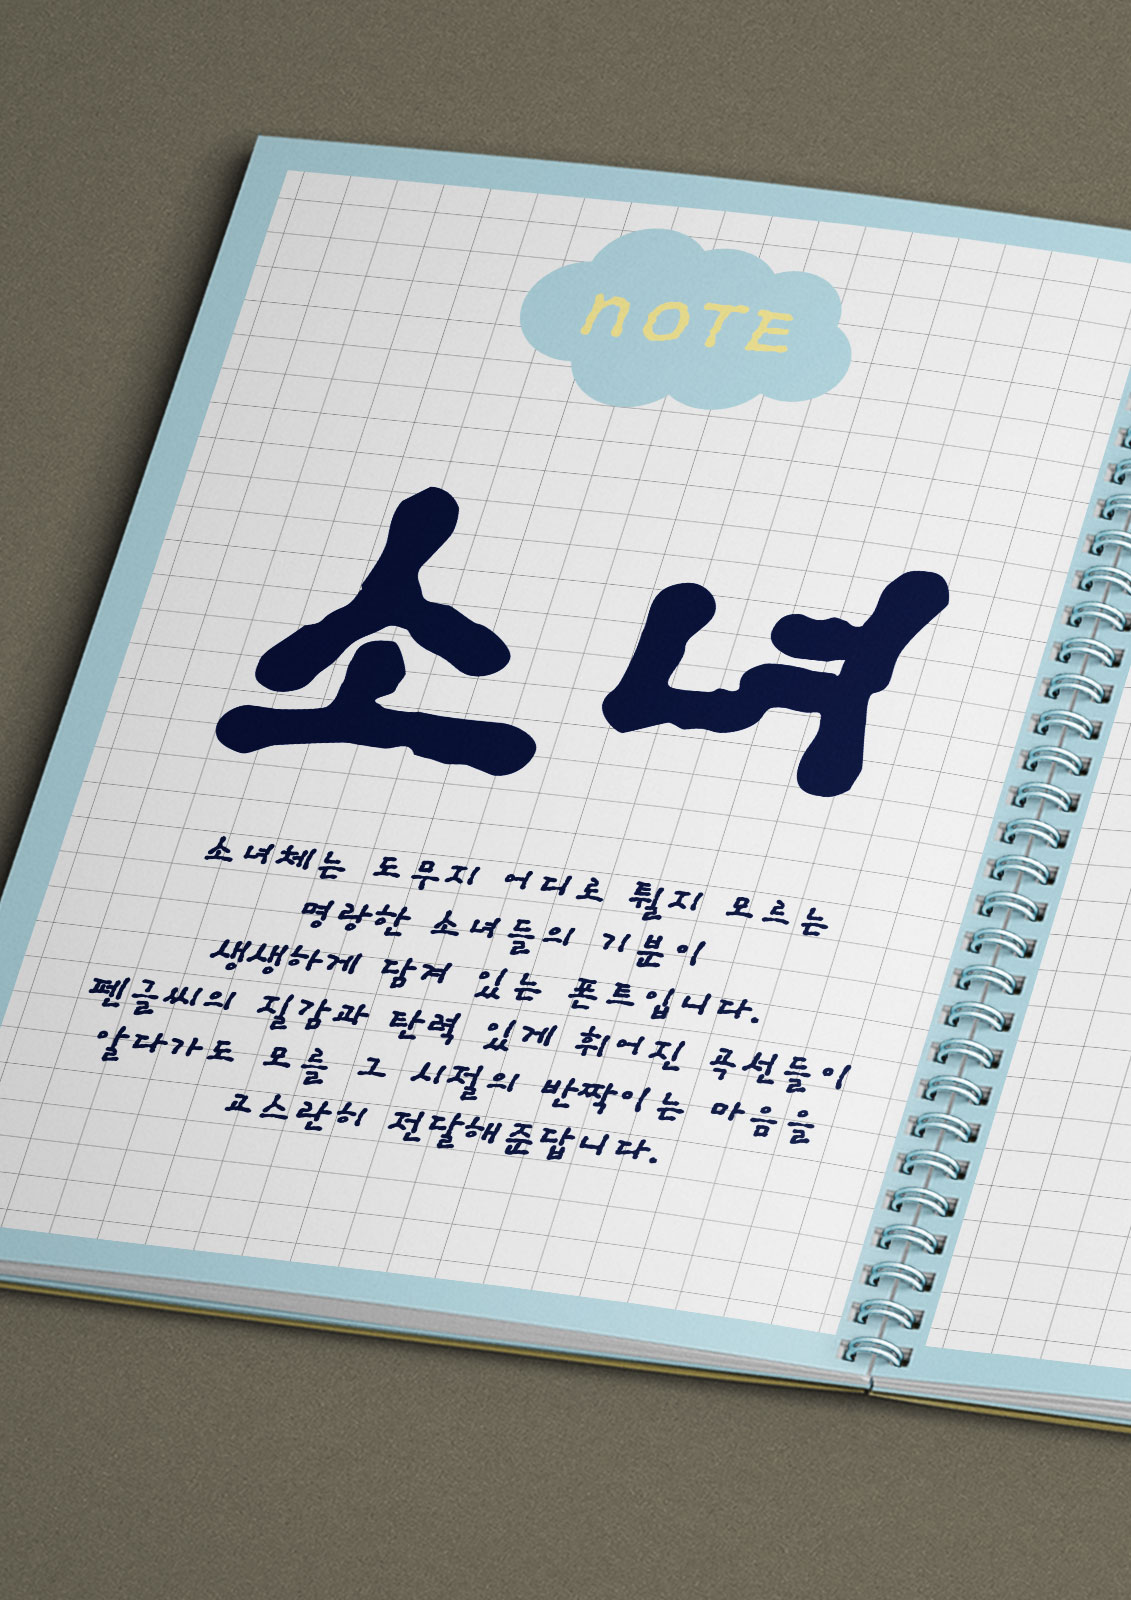 NOTE
소녀
소녀체는 도무지 어디로 튈지 모르는
명랑한 소녀들의 기분이
생생하게 담겨 있는 폰트입니다.
펜글씨의 질감과 탄력 있게 휘어진 곡선들이
알다가도 모를 그 시절의 반짝이는 마음을
고스란히 전달해준답니다.